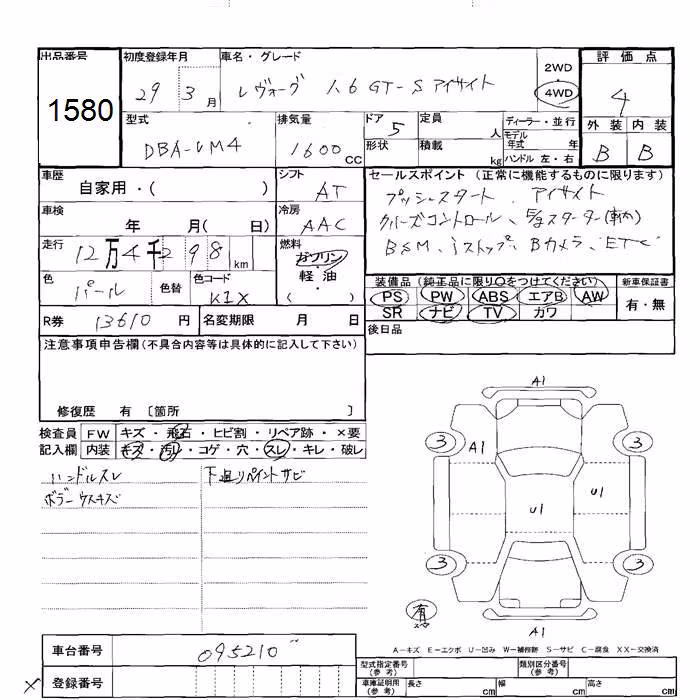 出品番号 初度登録年月 車名・グレード 2WD 評価点
1580 29 3月 レヴォーグ 1.6 GT-S アイサイト 4WD 4
型式 排気量 ドア 定員 ディーラー・並行 外装 内装
DBA-VM4 1600cc 5 人 モデル年式 年 B B
形状 積載 kg ハンドル 左・右
車歴 シフト セールスポイント(正常に機能するものに限ります)
自家用・( ) AT プッシュスタート、アイサイト
車検 冷房 クルーズコントロール、
年 月( 日) AAC BSM、iストップ、Bカメラ、ETC
走行 燃料
12万4千298km ガソリン
色 色替 色コード 軽油 装備品(純正品に限り○をつけてください) 新車保証書
パール K1X ( ) PS PW ABS エアB AW 有・無
SR ナビ TV カワ
R券 13610円 名変期限 月 日 後日品
注意事項申告欄(不具合内容等は具体的に記入して下さい)
修復歴 有 〔箇所 〕
検査員 FW キズ・飛石・ヒビ割・リペア跡・×要
記入欄 内装 キズ・汚レ・コゲ・穴・スレ・キレ・破レ
ハンドルスレ 下廻りペイントサビ
ボデーウスキズ
A1
3 3
A1
U1 U1
3 3
有
A1
A-キズ E-エクボ U-凹み W-補修跡 S-サビ C-腐食 XX-交換済
車台番号 095210
登録番号
型式指定番号(参考) 類別区分番号(参考)
車庫証明用(参考) 長さ cm 幅 cm 高さ cm